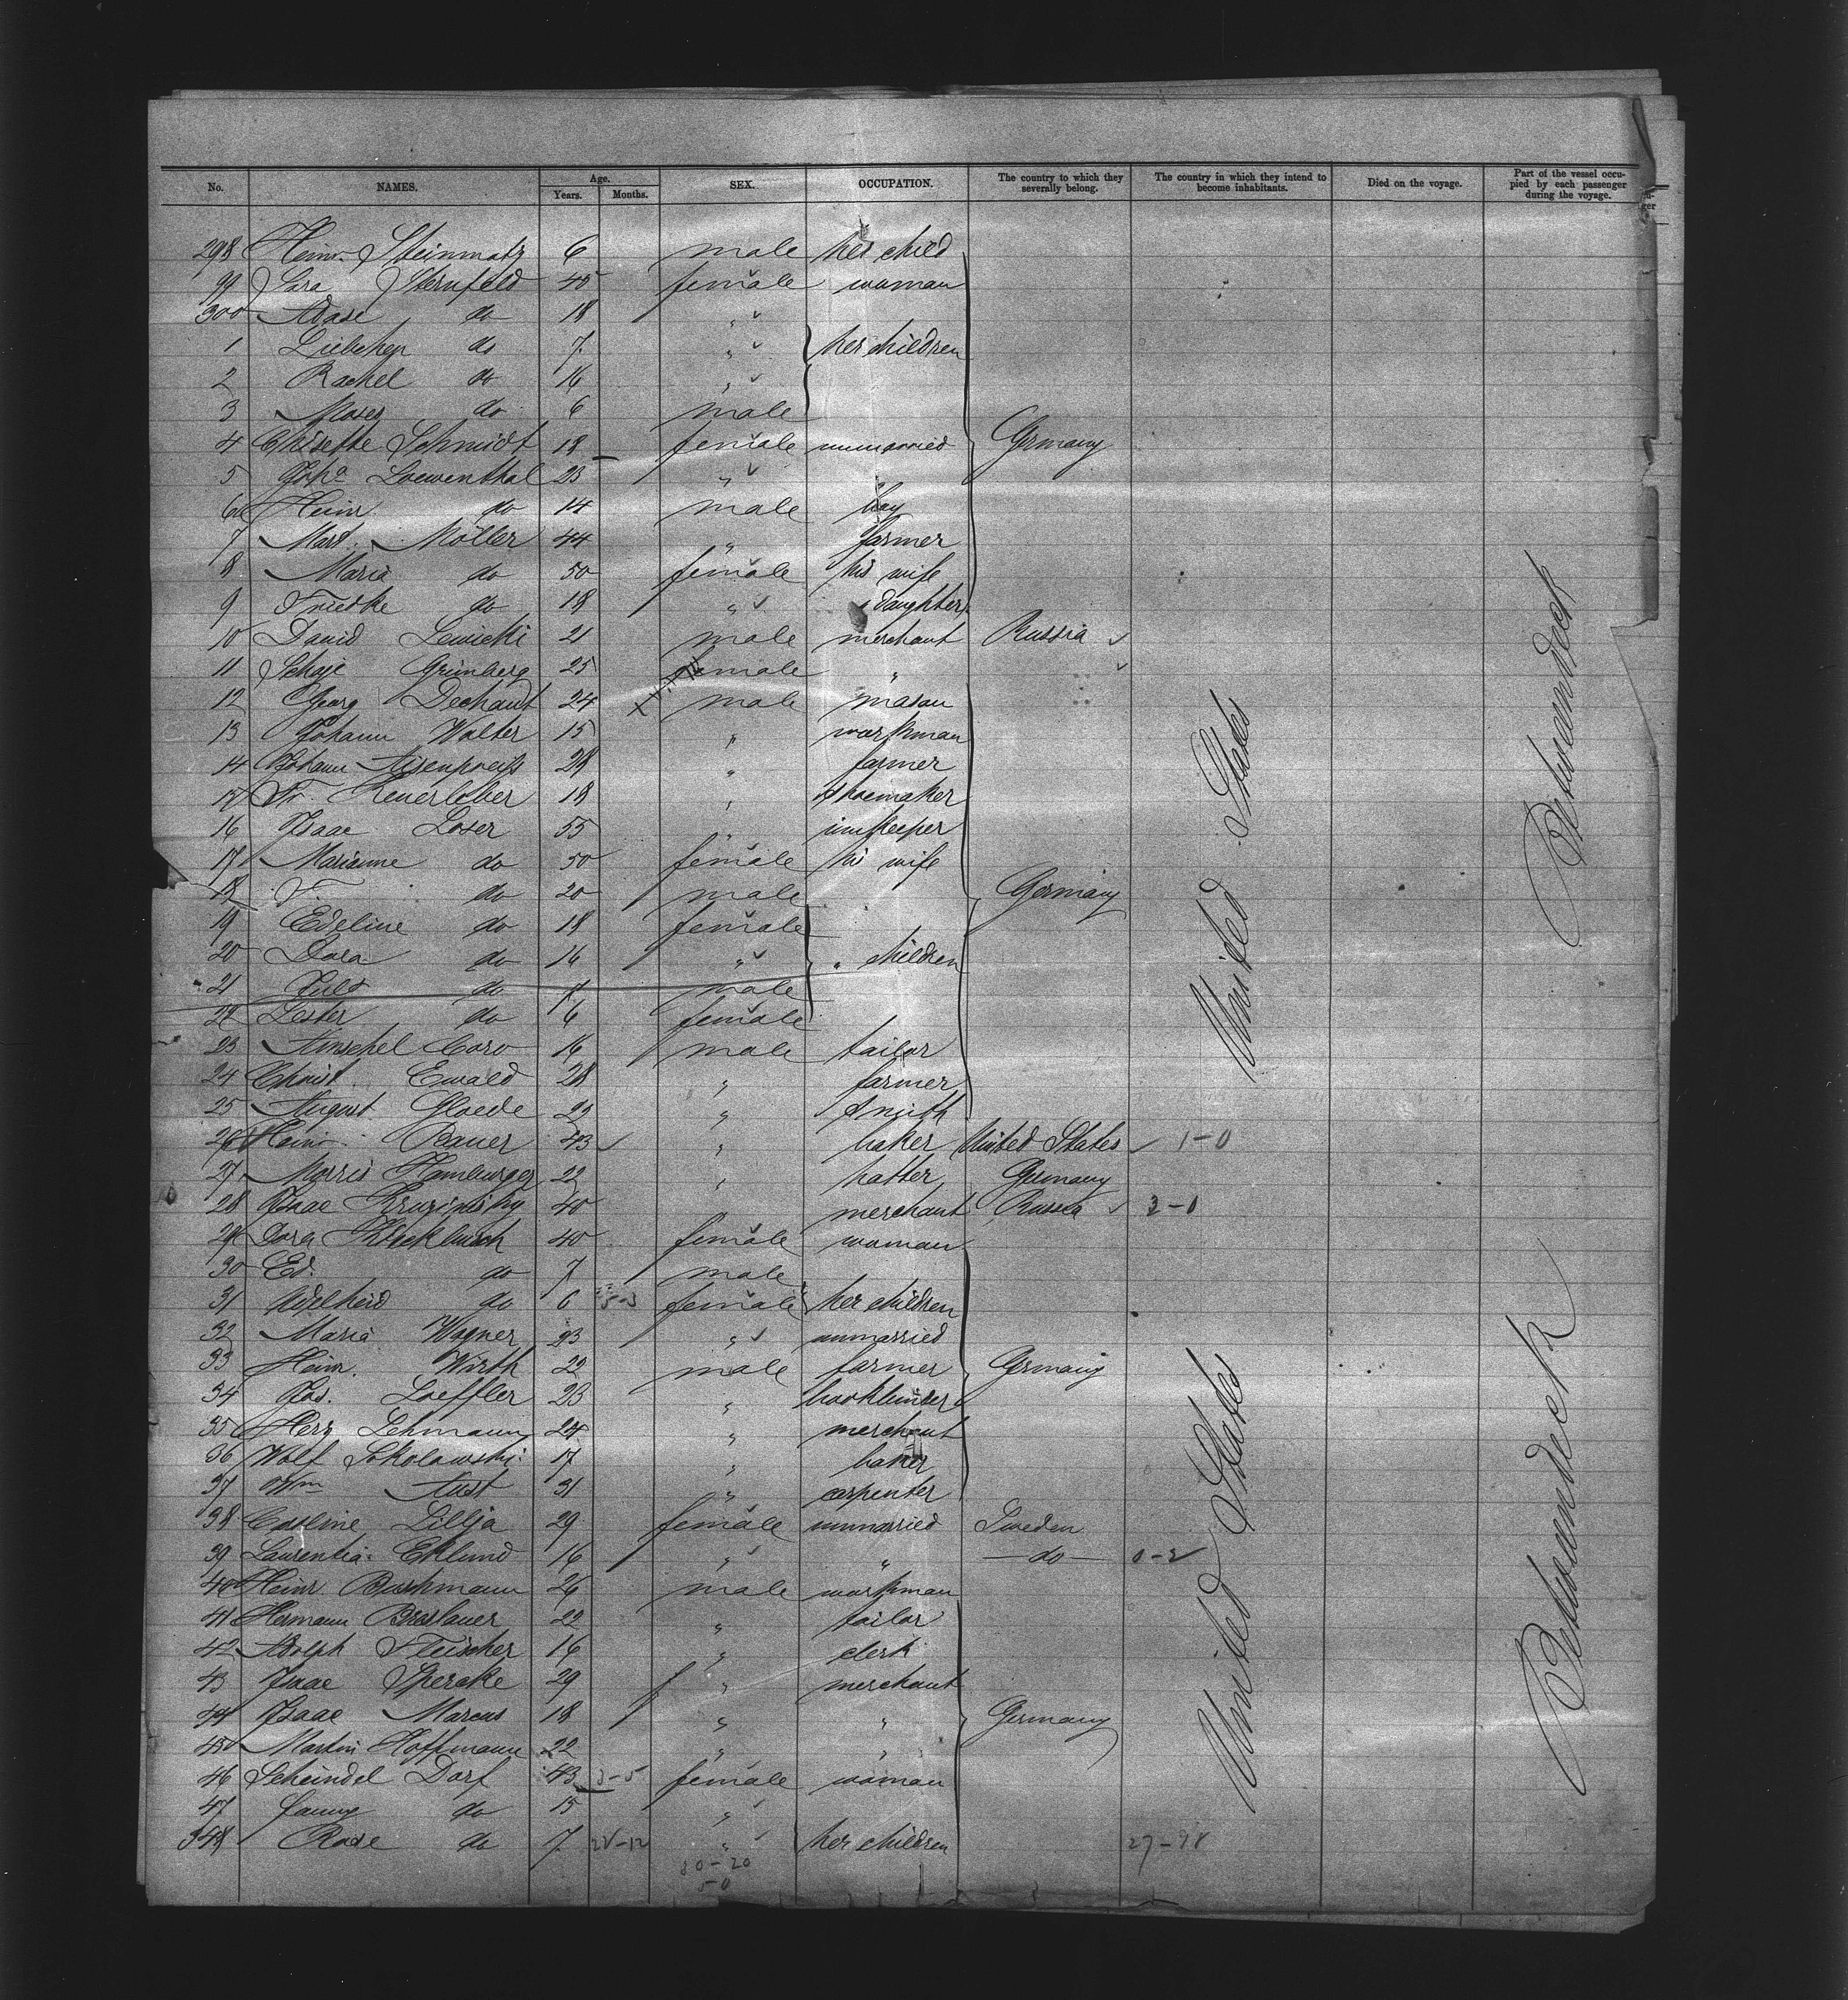 No. NAMES. Age. Years. Months. SEX. OCCUPATION. The country to which they severally belong. The country in which they intend to become inhabitants. Died on the voyage. Part of the vessel occupied by each passenger during the voyage.
298 Heinr. Steinmatz 6 male her child
99 Sara Sternfeld 40 female woman
300 do 18 "
1 Liebchen do 7 " her children
2 Rachel do 16 "
3 Moses do 6 male
4 Schmidt 18 female unmarried Germany
5 Joha Loewenthal 23 " "
6 Heinr do 14 male boy
7 Mart. Möller 44 " farmer
8 Maria do 50 female his wife
9 Friedke do 18 " " daughter
10 David Lewicki 21 male merchant Russia
11 Schaje Grünberg 25 female "
12 Georg Dechant 24 male mason
13 Johann Walter 15 " workman
14 Johann 28 " farmer
15 Fr. 18 " shoemaker
16 Isaac Loser 55 " innkeeper
17 Marianne do 50 female his wife
18 do 20 male Germany
19 Edeline do 18 female
20 Dora do 16 " " children
21 do male
22 Lester do 6 female
23 Hinschel Caro 16 male tailor
24 Christ. Ewald 28 " farmer
25 August Gloede 22 " smith
26 Heinr. Bauer 43 " baker United States 1-0
27 Morris Hamburger 22 " hatter Germany
28 Isaac 40 merchant Russia 3-0
29 Dora 40 female woman
30 Ed. do 7 male
31 Adelheid do 6 female her children
32 Maria Wagner 23 " unmarried
33 Heinr. Wirth 22 male farmer Germany
34 Jos. Loeffler 23 " bookbinder
35 Herz Lehmann 24 " merchant
36 Wolf Sokolowski 17 " baker
37 Wm Aust 31 " carpenter
38 Caroline Lillja 29 female unmarried Sweden
39 Laurentia Eklund 16 " " do 0-2
40 Heinr Buschmann 26 male workman
41 Hermann Breslauer 22 " tailor
42 Adolph Fleischer 16 " clerk
43 Isaac 29 " merchant
44 Isaac Marcus 18 " " Germany
45 Martin Hoffmann 22 " "
46 Scheindel Dorf 43 3-5 female woman
47 Fanny do 15 "
348 Rose do 7 28-12 " her children 27-98
80-20
5-0
United States
United States
Betweendeck
Betweendeck